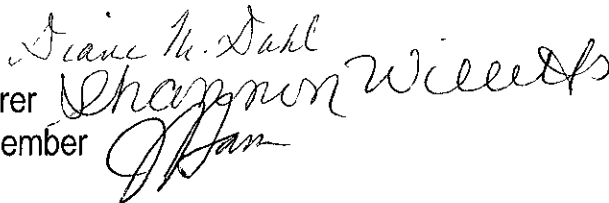 Diane M. Dahl
rer Shannon Willetts
ember